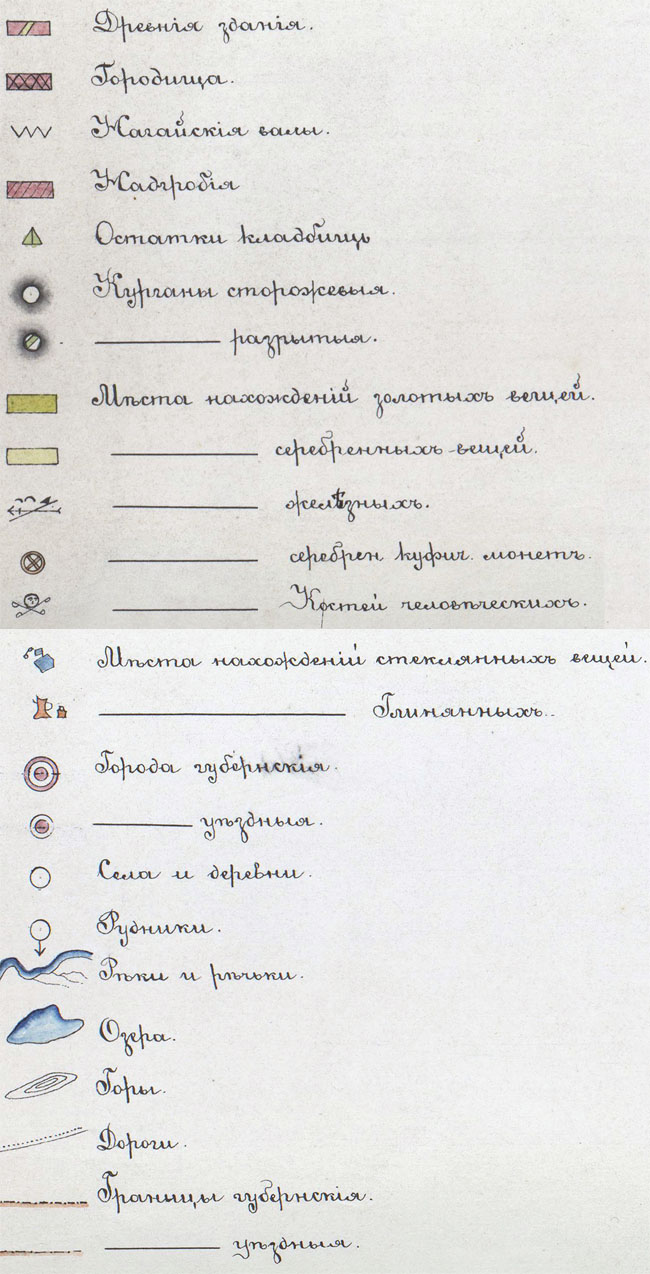 Древнія зданія.
Городища.
Нагайскія валы.
Надгробія
Остатки кладбищъ
Курганы сторожевыя.
——— разрытыя.
Мѣста нахожденій золотыхъ вещей.
——— серебренныхъ вещей.
——— желѣзныхъ.
——— серебрен куфич. монетъ.
——— Костей человѣческихъ.
Мѣста нахожденій стеклянныхъ вещей.
——— Глинянныхъ.
Города губернскія.
——— уѣздныя.
Села и деревни.
Рудники.
Рѣки и рѣчьки.
Озера.
Горы.
Дороги.
Границы губернскія.
——— уѣздныя.